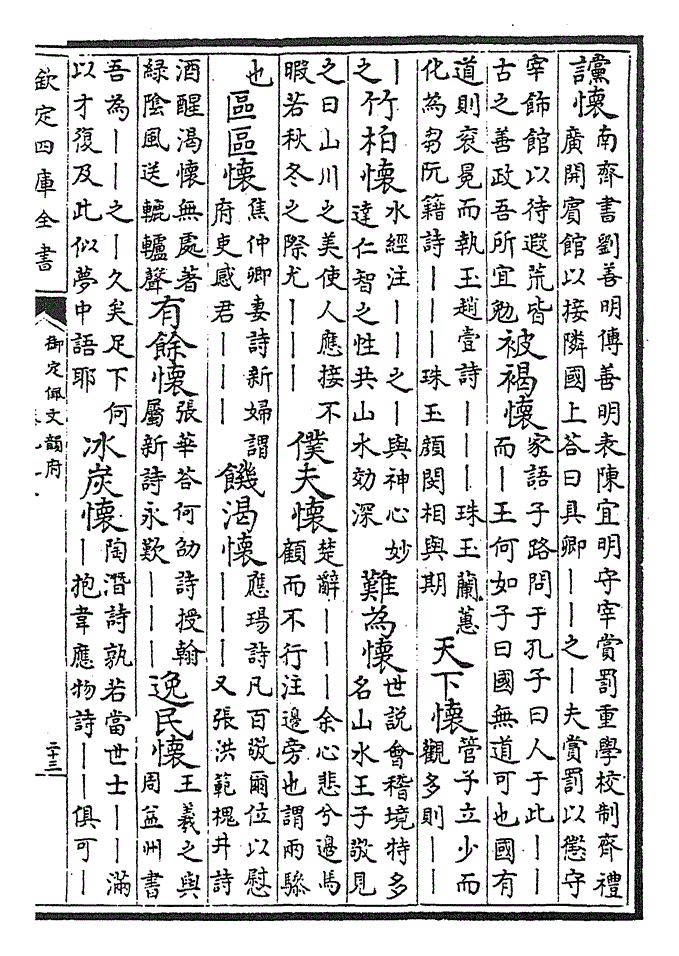 讜懷南齊書劉善明傳善明表陳宜明守宰賞罰重學校制齊禮廣開賓館以接隣國上答曰具卿——之—夫賞罰以懲守
宰飾館以待遐荒皆古之善政吾所宜勉 被褐懷家語子路問于孔子曰人于此——而—玉何如子曰國無道可也國有
道則衮冕而執玉趙壹詩———珠玉蘭蕙化為芻阮籍詩———珠玉顔閔相與期 天下懷管子立少而觀多則——
—之 竹柏懷水經注——之—與神心妙達仁智之性共山水効深 難為懷世説會稽境特多名山水王子敬見
之曰山川之美使人應接不暇若秋冬之際尤——— 僕夫懷楚辭———余心悲兮邊馬顧而不行注邊旁也謂兩驂
也 區區懷焦仲卿妻詩新婦謂府吏感君——— 饑渴懷應瑒詩凡百敬爾位以慰———又張洪範槐井詩
酒醒渴懷無處著緑陰風送轆轤聲 有餘懷張華答何劭詩授翰屬新詩永歎——— 逸民懷王羲之與周益州書
吾為——之—久矣足下何以才復及此似夢中語耶 冰炭懷陶潛詩孰若當世士——滿—抱韋應物詩——俱可—
欽定四庫全書
御定佩文韻府
二十三